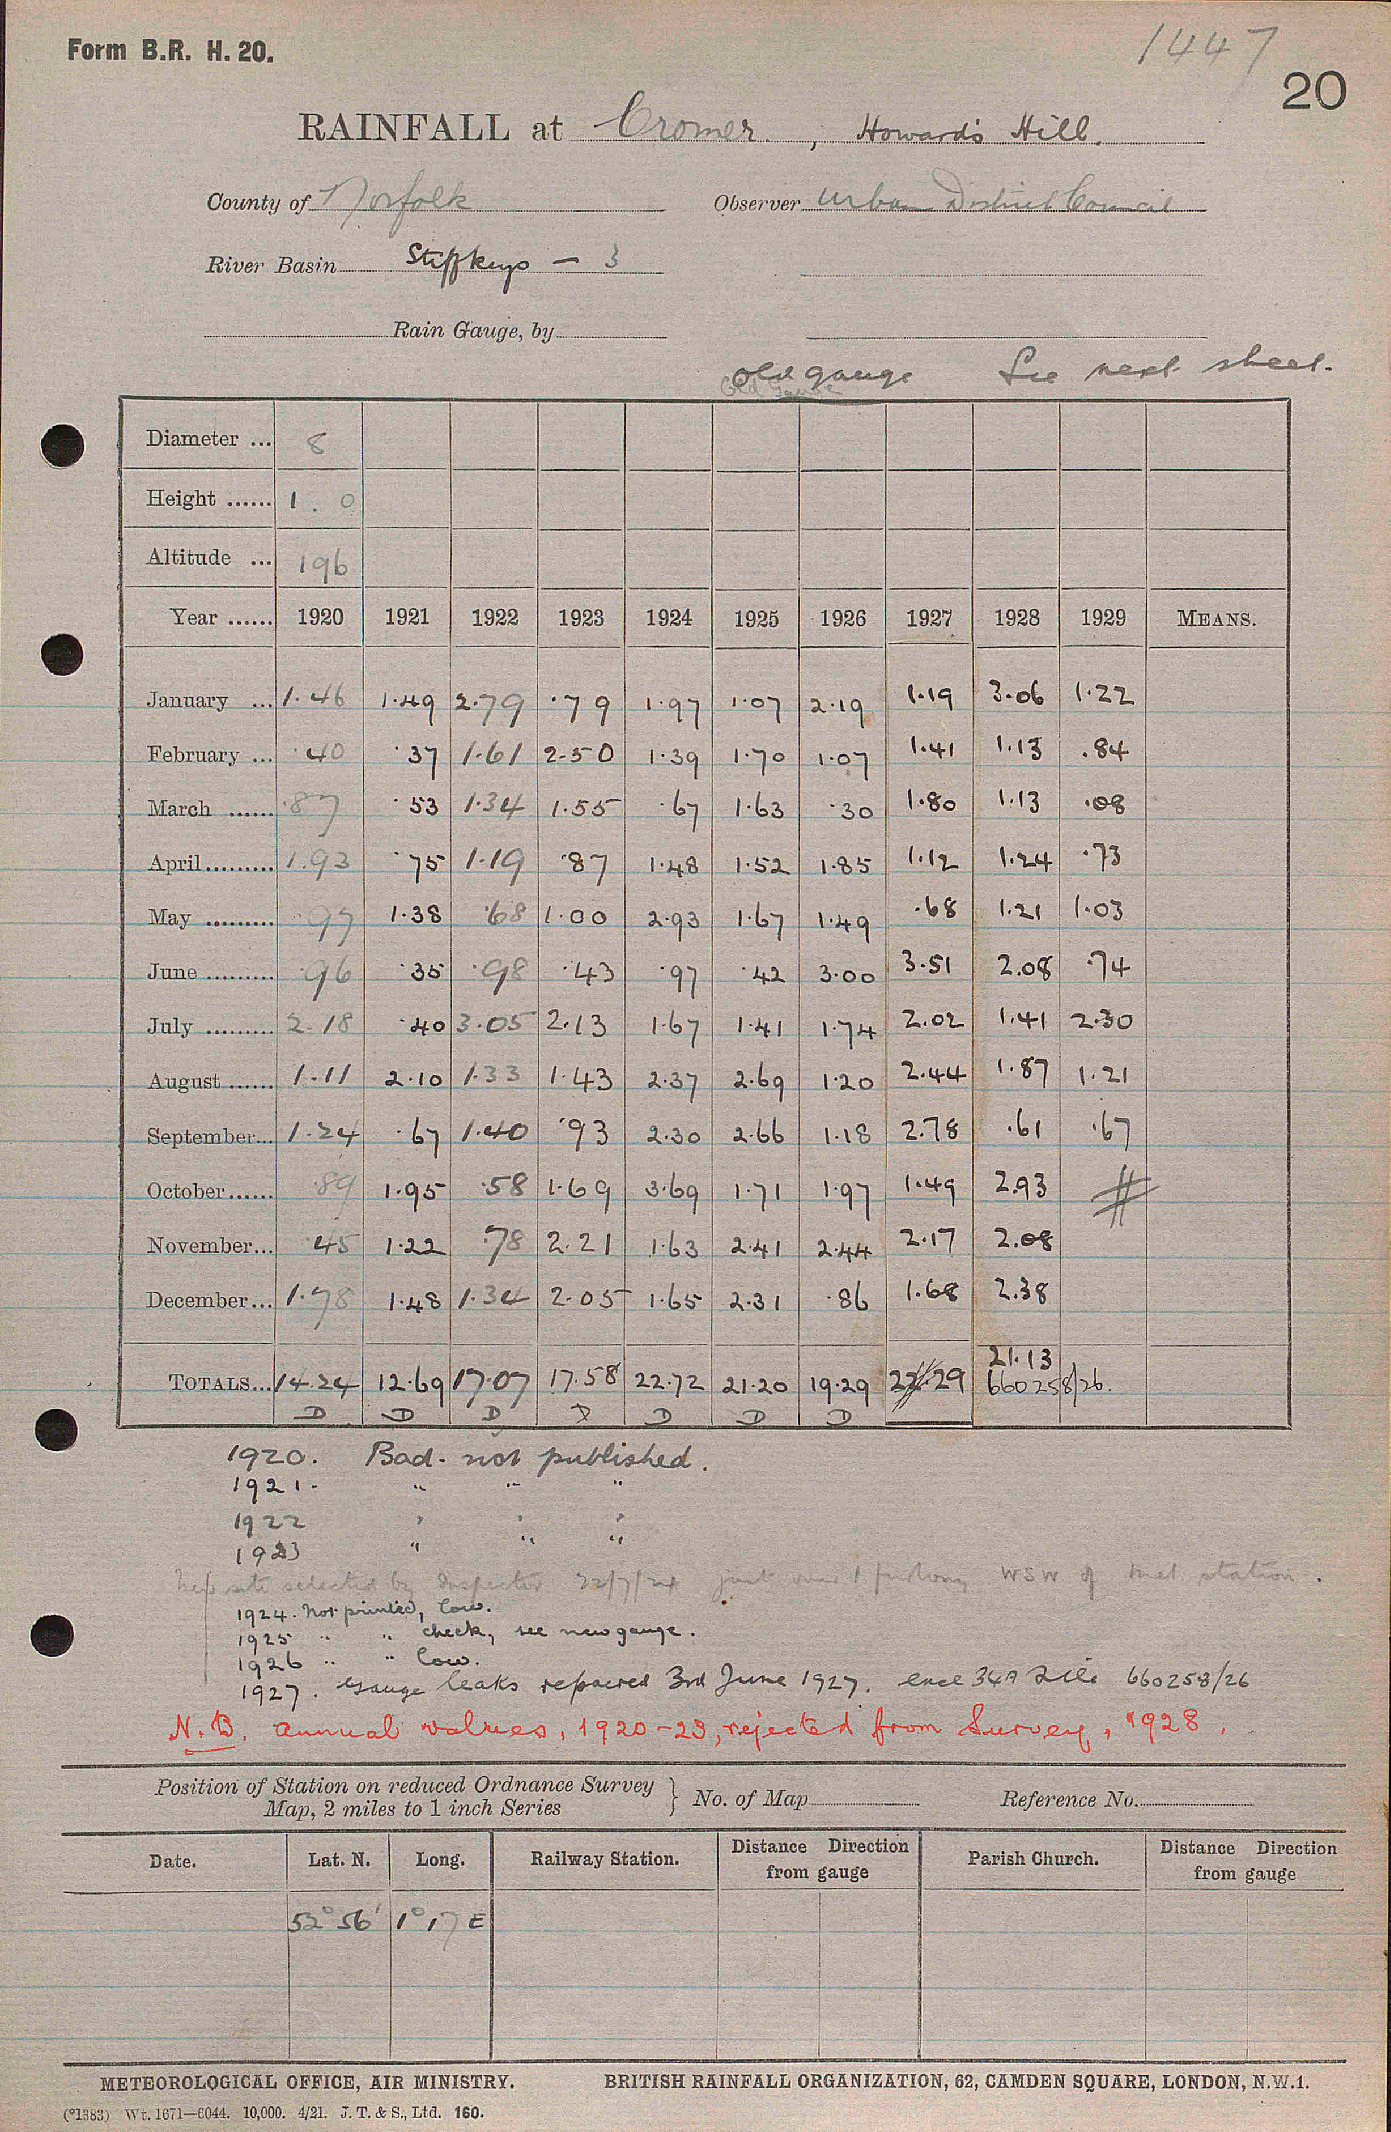 Form B.R. H. 20.
1447
20
RAINFALL at Cromer, Howards Hill.
County of Norfolk Observer Urban District Council
River Basin Stiffkey - 3
Rain Gauge, by
old gauge See next sheet.
Old Gauge
Diameter ... 8
Height ...... 1. 0
Altitude ... 196
Year ...... 1920 1921 1922 1923 1924 1925 1926 1927 1928 1929 MEANS.
January ... 1.46 1.49 2.79 .79 1.97 1.07 2.19 1.19 3.06 1.22
February ... .40 .37 1.61 2.50 1.39 1.70 1.07 1.41 1.13 .84
March ...... .87 .53 1.34 1.55 .67 1.63 .30 1.80 1.13 .08
April......... 1.93 .75 1.19 .87 1.48 1.52 1.85 1.12 1.24 .73
May ......... .97 1.38 .68 1.00 2.93 1.67 1.49 .68 1.21 1.03
June ......... .96 .35 .98 .43 .97 .42 3.00 3.51 2.08 .74
July ......... 2.18 .40 3.05 2.13 1.67 1.41 1.74 2.02 1.41 2.30
August ...... 1.11 2.10 1.33 1.43 2.37 2.69 1.20 2.44 1.87 1.21
September... 1.24 .67 1.40 .93 2.30 2.66 1.18 2.78 .61 .67
October...... .89 1.95 .58 1.69 3.69 1.71 1.97 1.49 2.93
November... .45 1.22 .78 2.21 1.63 2.41 2.44 2.17 2.08
December... 1.78 1.48 1.34 2.05 1.65 2.31 .86 1.68 2.38
21.13
TOTALS... 14.24 12.69 17.07 17.58 22.72 21.20 19.29 22.29 660258/26.
D D D D D D D
1920. Bad. not published.
1921. " " "
1922 " " "
1923 " " "
New site selected by Inspector 22/7/24 just over 1 furlong WSW of met station.
1924. Not printed, low.
1925 " " check, see new gauge.
1926 " " low.
1927. Gauge leaks repaired 3rd June 1927. 660258/26
N.B. annual values, 1920-23, rejected from Survey, 1928.
Position of Station on reduced Ordnance Survey
Map, 2 miles to 1 inch Series } No. of Map Reference No.
Date. Lat. N. Long. Railway Station. Distance Direction from gauge Parish Church. Distance Direction from gauge
52° 56' 1° 17 E
METEOROLOGICAL OFFICE, AIR MINISTRY. BRITISH RAINFALL ORGANIZATION, 62, CAMDEN SQUARE, LONDON, N.W.1.
(*1383) Wt. 1671—6044. 10,000. 4/21. J. T. & S., Ltd. 160.